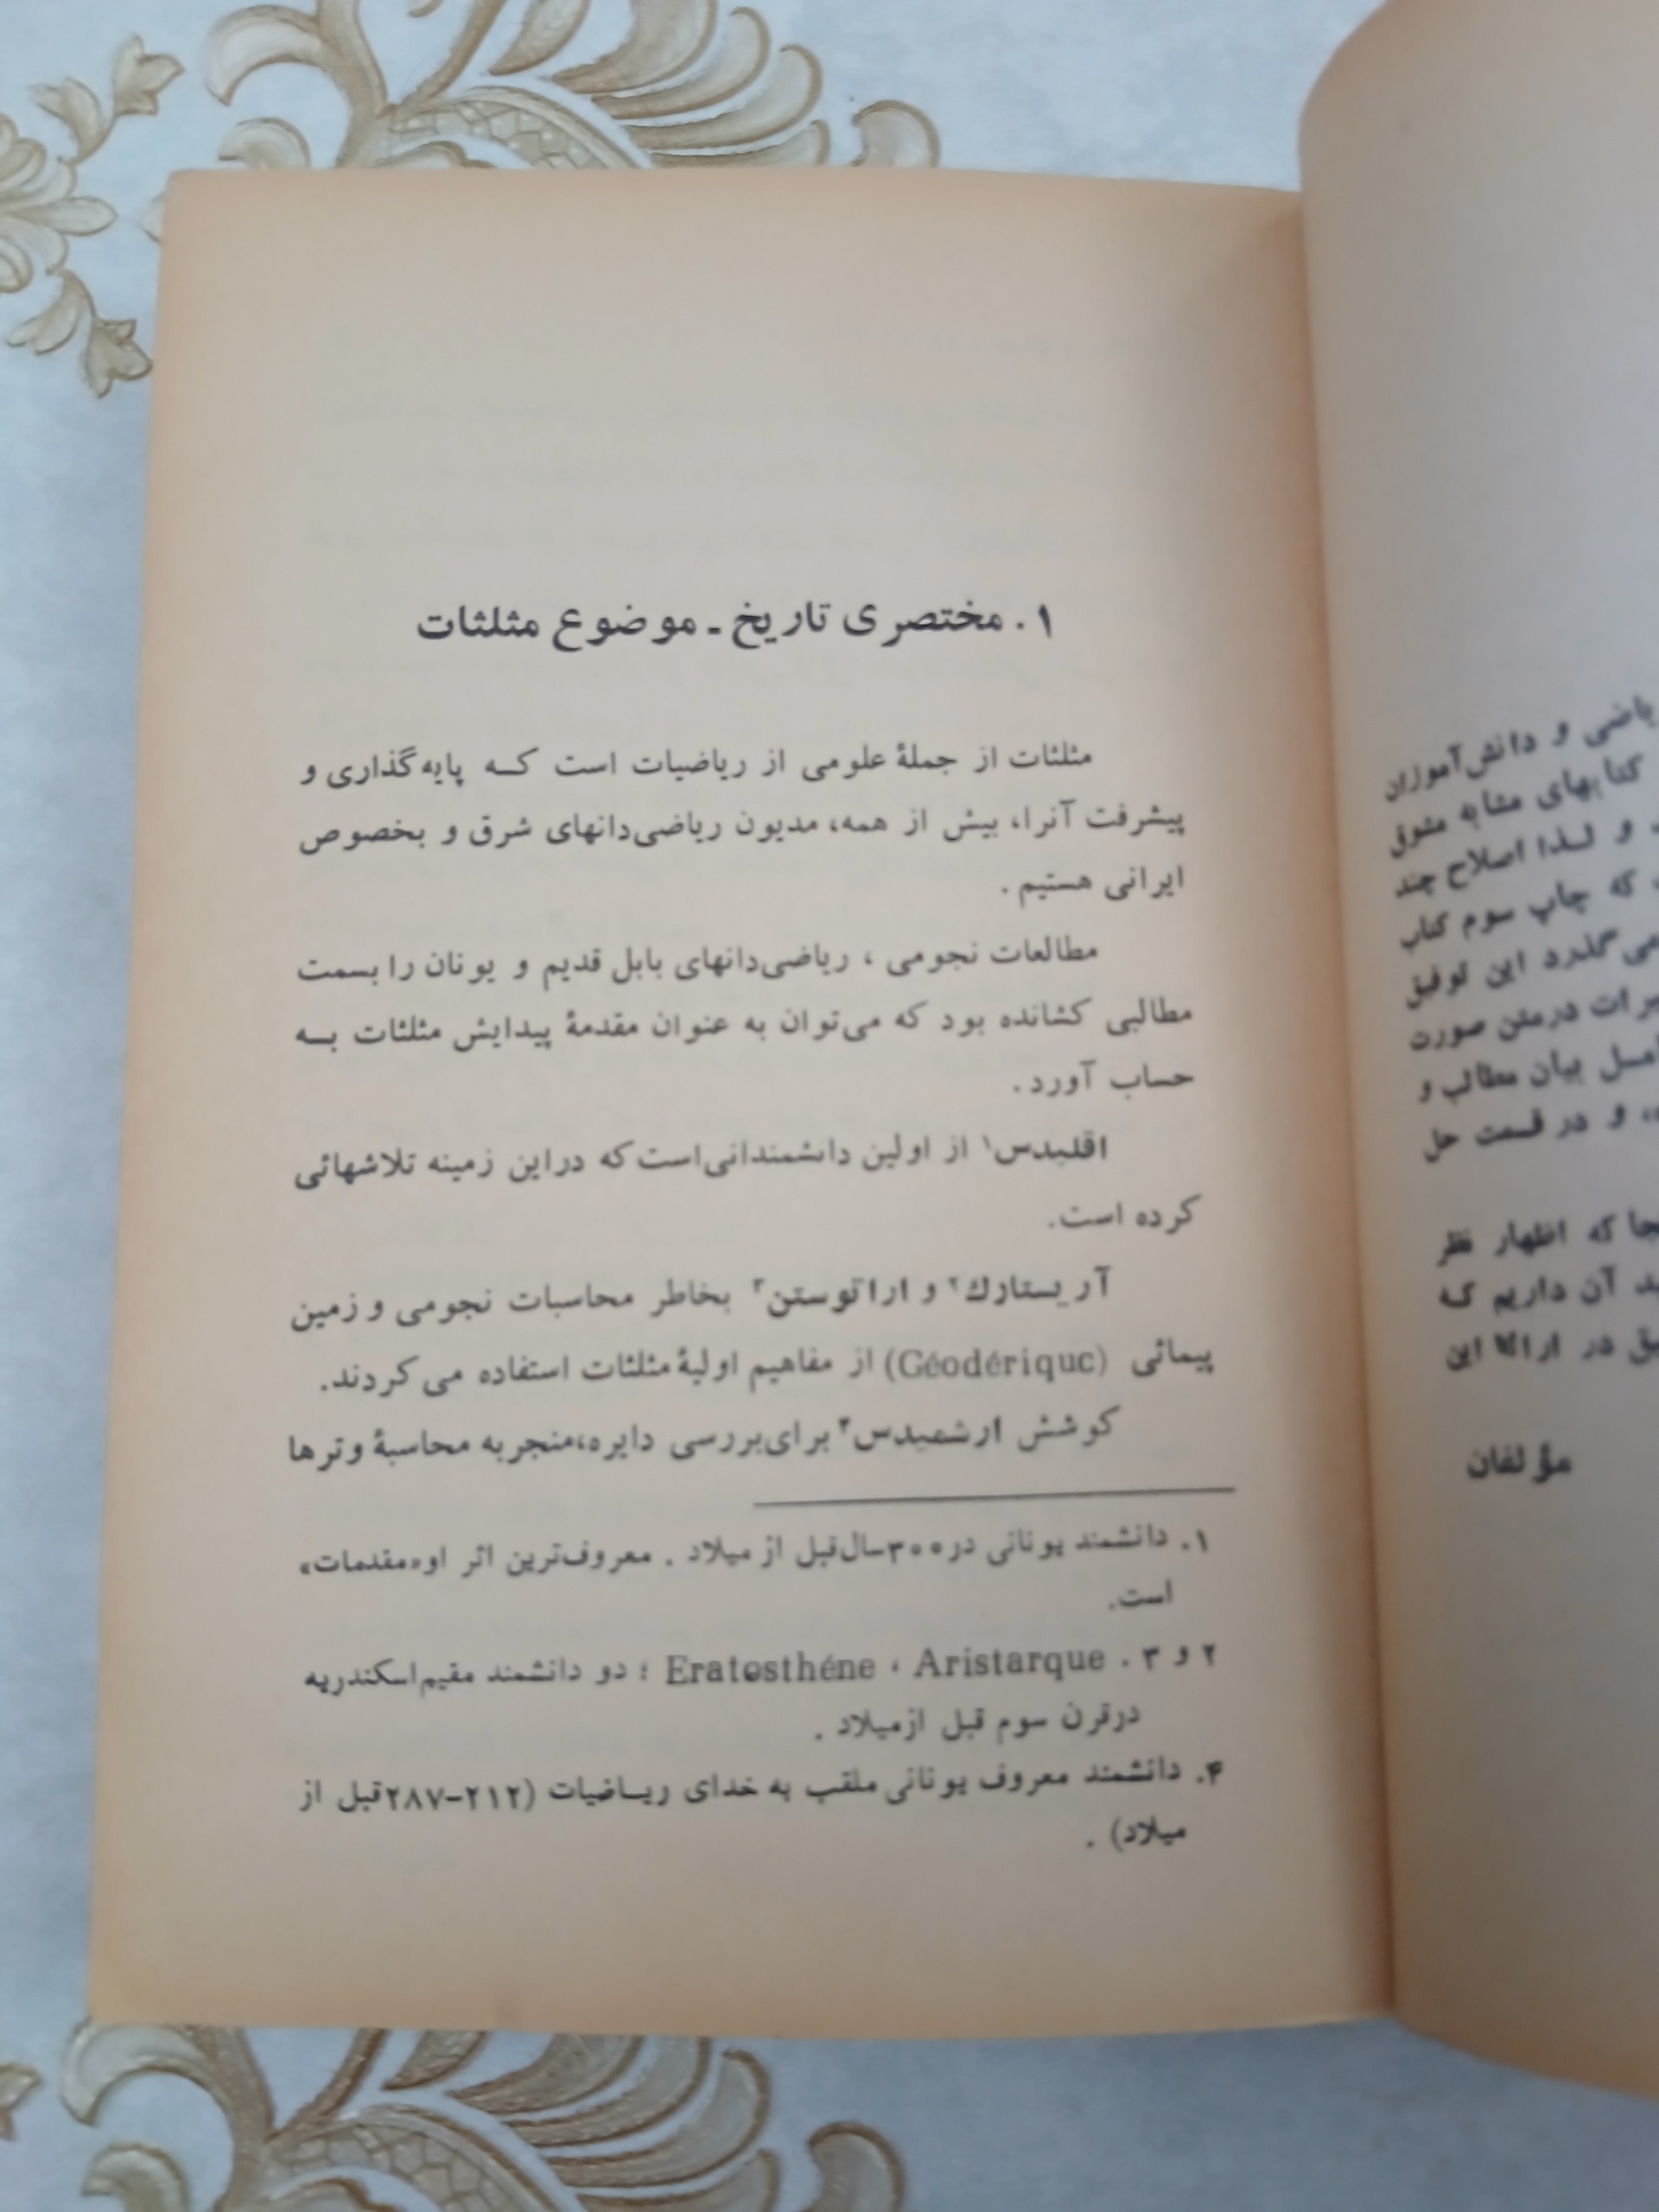 ۱. مختصری تاریخ ـ موضوع مثلثات
مثلثات از جملهٔ علومی از ریاضیات است کـه پایه‌گذاری و
پیشرفت آنرا، بیش از همه، مدیون ریاضی‌دانهای شرق و بخصوص
ایرانی هستیم .
مطالعات نجومی ، ریاضی‌دانهای بابل قدیم و یونان را بسمت
مطالبی کشانده بود که می‌توان به عنوان مقدمهٔ پیدایش مثلثات بـه
حساب آورد .
اقلیدس۱ از اولین دانشمندانی‌است که دراین زمینه تلاشهائی
کرده است.
آریستارك۲ و اراتوستن۳ بخاطر محاسبات نجومی و زمین
پیمائی (Géodériquc) از مفاهیم اولیهٔ مثلثات استفاده می‌کردند.
کوشش ارشمیدس۴ برای‌بررسی دایره،منجربه محاسبهٔ وترها
۱. دانشمند یونانی در۳۰۰سال‌قبل ازمیلاد . معروف‌ترین اثر او«مقدمات»
است.
۲ و ۳ . Eratosthéne ، Aristarque ؛ دو دانشمند مقیم‌اسکندریه
درقرن سوم قبل ازمیلاد .
۴. دانشمند معروف یونانی ملقب به خدای ریـاضیات (۲۱۲–۲۸۷قبل از
میلاد) .
یاضی و دانش‌آموزان
کتابهای مشابه مشوق
و لـذا اصلاح چند
که چاپ سوم کتاب
می‌گذرد این توفیق
درمتن صورت
بیان مطالب و
و در قسمت حل
که اظهار نظر
آن داریم کـه
در ارائهٔ این
مؤلفان